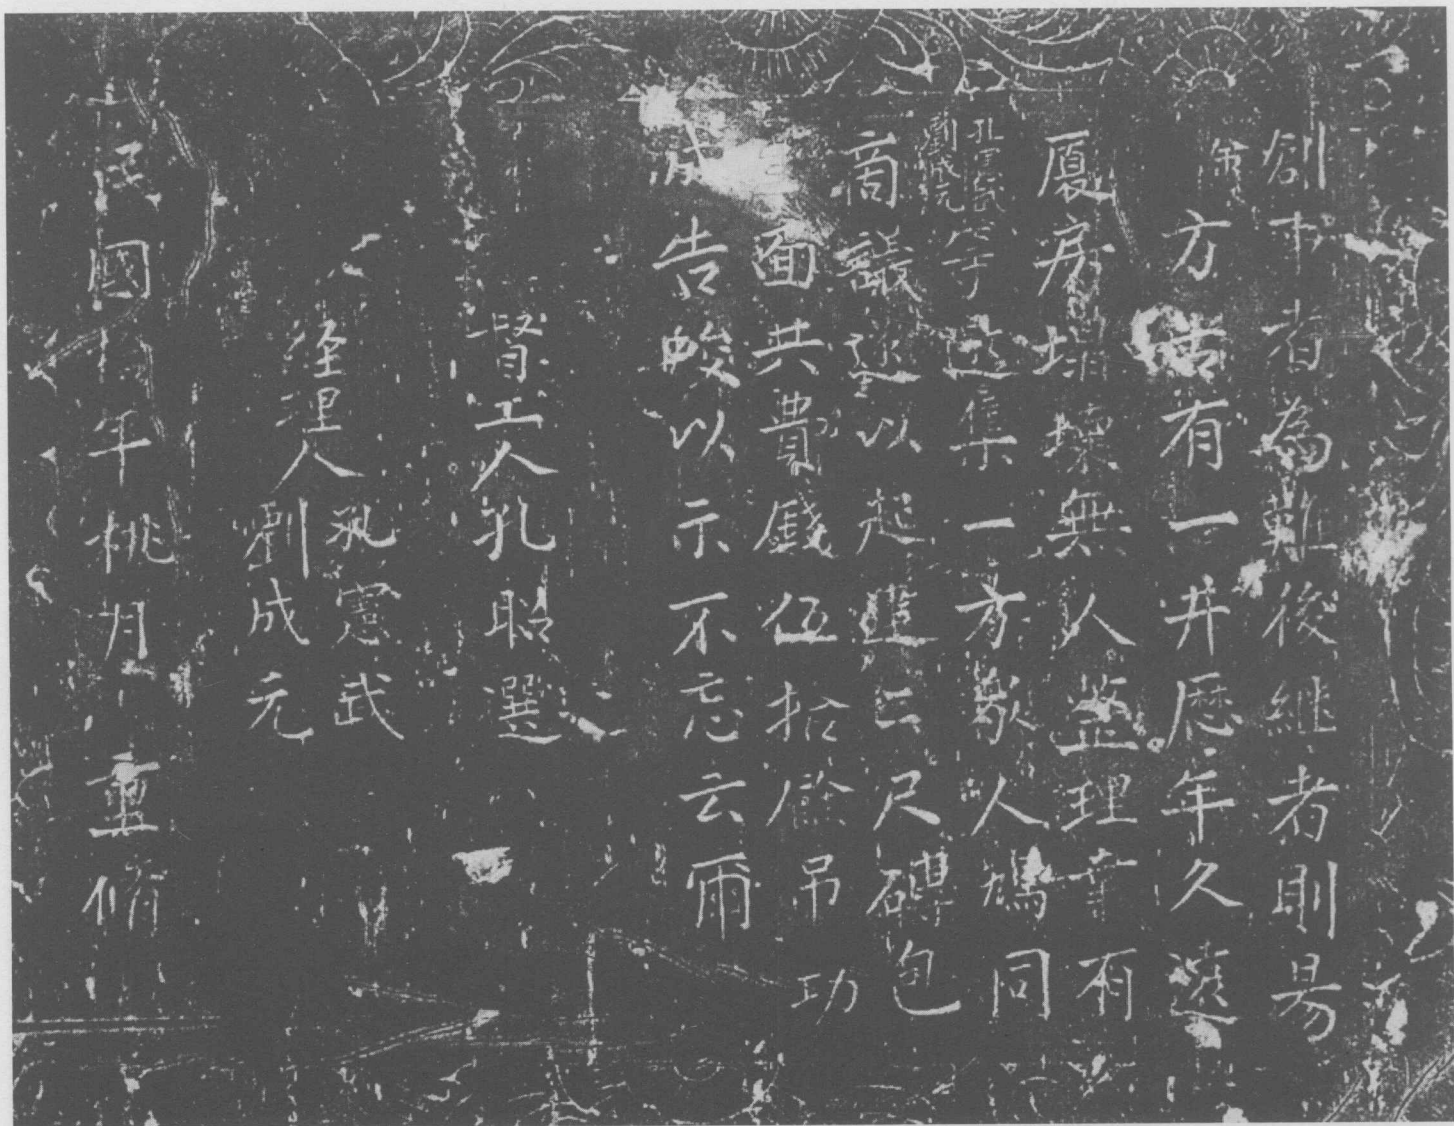 創市者為難後繼者則易
余方舊有一井歷年久遠
厦房塌壞無人整理幸有
孔憲武
劉成元
等邀集一方眾人鳩同
商議遂以起蓋尺磚包
面共費錢伍拾餘吊功
成告竣以示不忘云爾
督工人孔昭選
經理人
孔憲武
劉成元
民國拾年桃月重脩